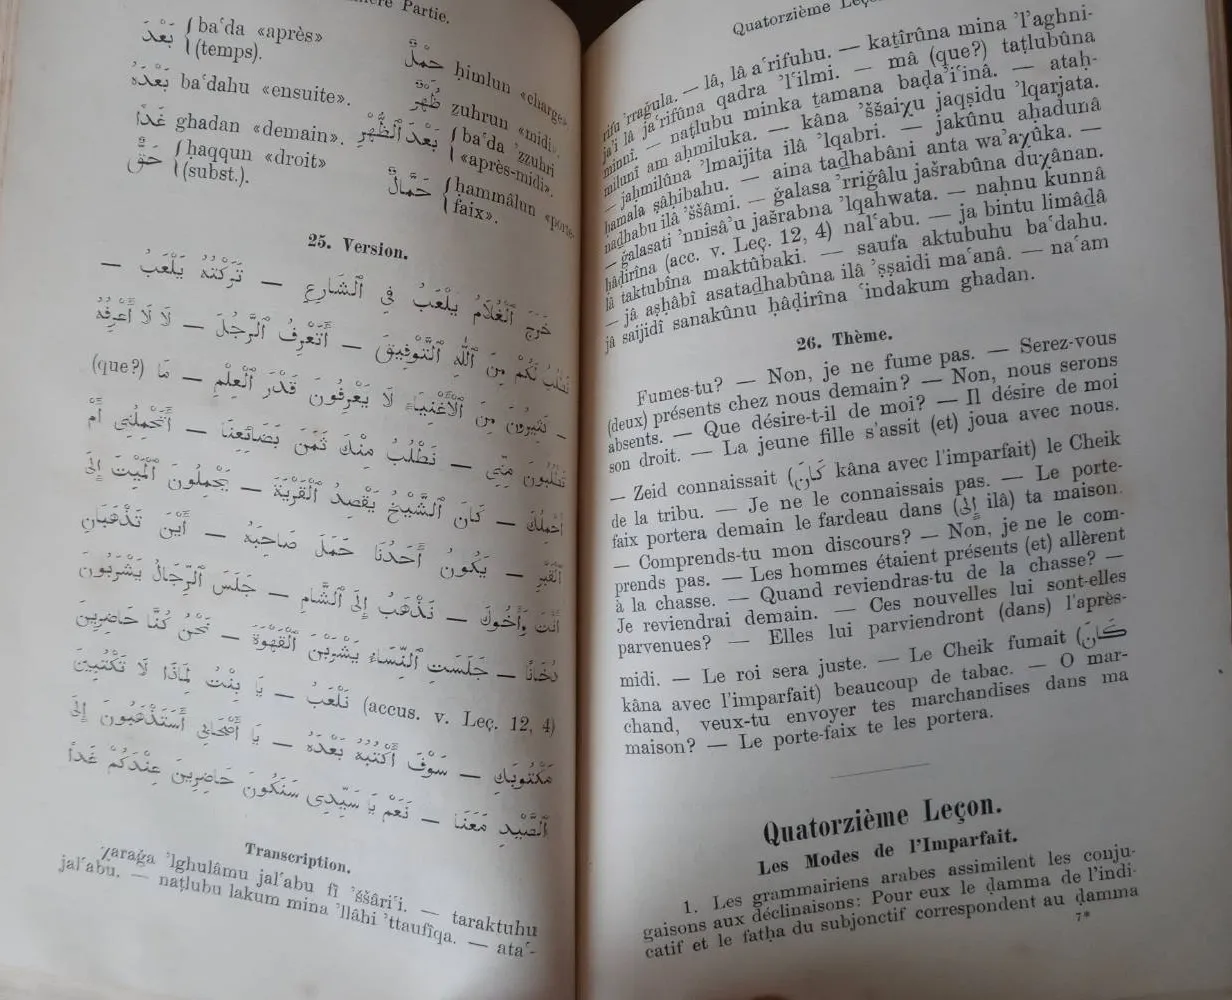 Partie.
بَعْدَ baʿda «après»
(temps).
بَعْدَهُ baʿdahu «ensuite».
غَداً ghadan «demain».
حَقٌّ ḥaqqun «droit»
(subst.).
حَمْلٌ ḥimlun «charge»
ظُهْرٌ zuhrun «midi».
بَعْدَ ٱلظُّهْرِ baʿda ʾzzuhri
«après-midi».
حَمَّالٌ ḥammâlun «porte-
faix».
25. Version.
خَرَجَ ٱلْغُلَامُ يَلْعَبُ فِي ٱلشَّارِعِ — تَرَكْتُهُ يَلْعَبُ —
نَطْلُبُ لَكُمْ مِنَ ٱللّٰهِ ٱلتَّوْفِيقَ — أَتَعْرِفُ ٱلرَّجُلَ — لَا لَا أَعْرِفُهُ
— كَثِيرُونَ مِنَ ٱلْأَغْنِيَاءِ لَا يَعْرِفُونَ قَدْرَ ٱلْعِلْمِ — مَا (que?)
تَطْلُبُونَ مِنِّي — نَطْلُبُ مِنْكَ ثَمَنَ بَضَائِعِنَا — أَتَحْمِلُنِي أَمْ
أَحْمِلُكَ — كَانَ ٱلشَّيْخُ يَقْصِدُ ٱلْقَرْيَةَ — يَحْمِلُونَ ٱلْمَيْتَ إِلَى
ٱلْقَبْرِ — يَكُونُ أَحَدُنَا حَمَلَ صَاحِبَهُ — أَيْنَ تَذْهَبَانِ
أَنْتَ وَأَخُوكَ — نَذْهَبُ إِلَى ٱلشَّامِ — جَلَسَ ٱلرِّجَالُ يَشْرَبُونَ
دُخَانًا — جَلَسَتِ ٱلنِّسَاءُ يَشْرَبْنَ ٱلْقَهْوَةَ — نَحْنُ كُنَّا حَاضِرِينَ
(accus. v. Leç. 12, 4) نَلْعَبُ — يَا بِنْتُ لِمَاذَا لَا تَكْتُبِينَ
مَكْتُوبَكِ — سَوْفَ أَكْتُبُهُ بَعْدَهُ — يَا أَصْحَابِي أَسَتَذْهَبُونَ إِلَى
ٱلصَّيْدِ مَعَنَا — نَعَمْ يَا سَيِّدِي سَنَكُونُ حَاضِرِينَ عِنْدَكُمْ غَداً
Transcription.
χaraǧa ʾlghulâmu jalʿabu fî ʾššâriʿi. — taraktuhu
jalʿabu. — naṭlubu lakum mina ʾllâhi ʾttaufîqa. — ataʿ-
Quatorzième Leçon.
rifu ʾrraǧula. — lâ, lâ aʿrifuhu. — kaṯîrûna mina ʾlʾaghni-
jaʾi lâ jaʿrifûna qadra ʾlʿilmi. — mâ (que?) taṭlubûna
minnî. — naṭlubu minka ṯamana baḍaʾiʿinâ. — ataḥ-
milunî am aḥmiluka. — kâna ʾššaiχu jaqṣidu ʾlqarjata.
— jaḥmilûna ʾlmaijita ilâ ʾlqabri. — jakûnu aḥadunâ
ḥamala ṣâḥibahu. — aina taḏhabâni anta waʾaχûka. —
naḏhabu ilâ ʾššâmi. — ǧalasa ʾrriǧâlu jašrabûna duχânan.
— ǧalasati ʾnnisâʾu jašrabna ʾlqahwata. — naḥnu kunnâ
ḥâḍirîna (acc. v. Leç. 12, 4) nalʿabu. — ja bintu limâḏâ
lâ taktubîna maktûbaki. — saufa aktubuhu baʿdahu.
— jâ aṣḥâbî asataḏhabûna ilâ ʾṣṣaidi maʿanâ. — naʿam
jâ saijidî sanakûnu ḥâḍirîna ʿindakum ghadan.
26. Thème.
Fumes-tu? — Non, je ne fume pas. — Serez-vous
(deux) présents chez nous demain? — Non, nous serons
absents. — Que désire-t-il de moi? — Il désire de moi
son droit. — La jeune fille s'assit (et) joua avec nous.
— Zeid connaissait (كَانَ kâna avec l'imparfait) le Cheik
de la tribu. — Je ne le connaissais pas. — Le porte-
faix portera demain le fardeau dans (إِلَى ilâ) ta maison.
— Comprends-tu mon discours? — Non, je ne le com-
prends pas. — Les hommes étaient présents (et) allèrent
à la chasse. — Quand reviendras-tu de la chasse? —
Je reviendrai demain. — Ces nouvelles lui sont-elles
parvenues? — Elles lui parviendront (dans) l'après-
midi. — Le roi sera juste. — Le Cheik fumait (كَانَ
kâna avec l'imparfait) beaucoup de tabac. — O mar-
chand, veux-tu envoyer tes marchandises dans ma
maison? — Le porte-faix te les portera.
Quatorzième Leçon.
Les Modes de l'Imparfait.
1. Les grammairiens arabes assimilent les conju-
gaisons aux déclinaisons: Pour eux le ḍamma de l'indi-
catif et le fatḥa du subjonctif correspondent au ḍamma
7*